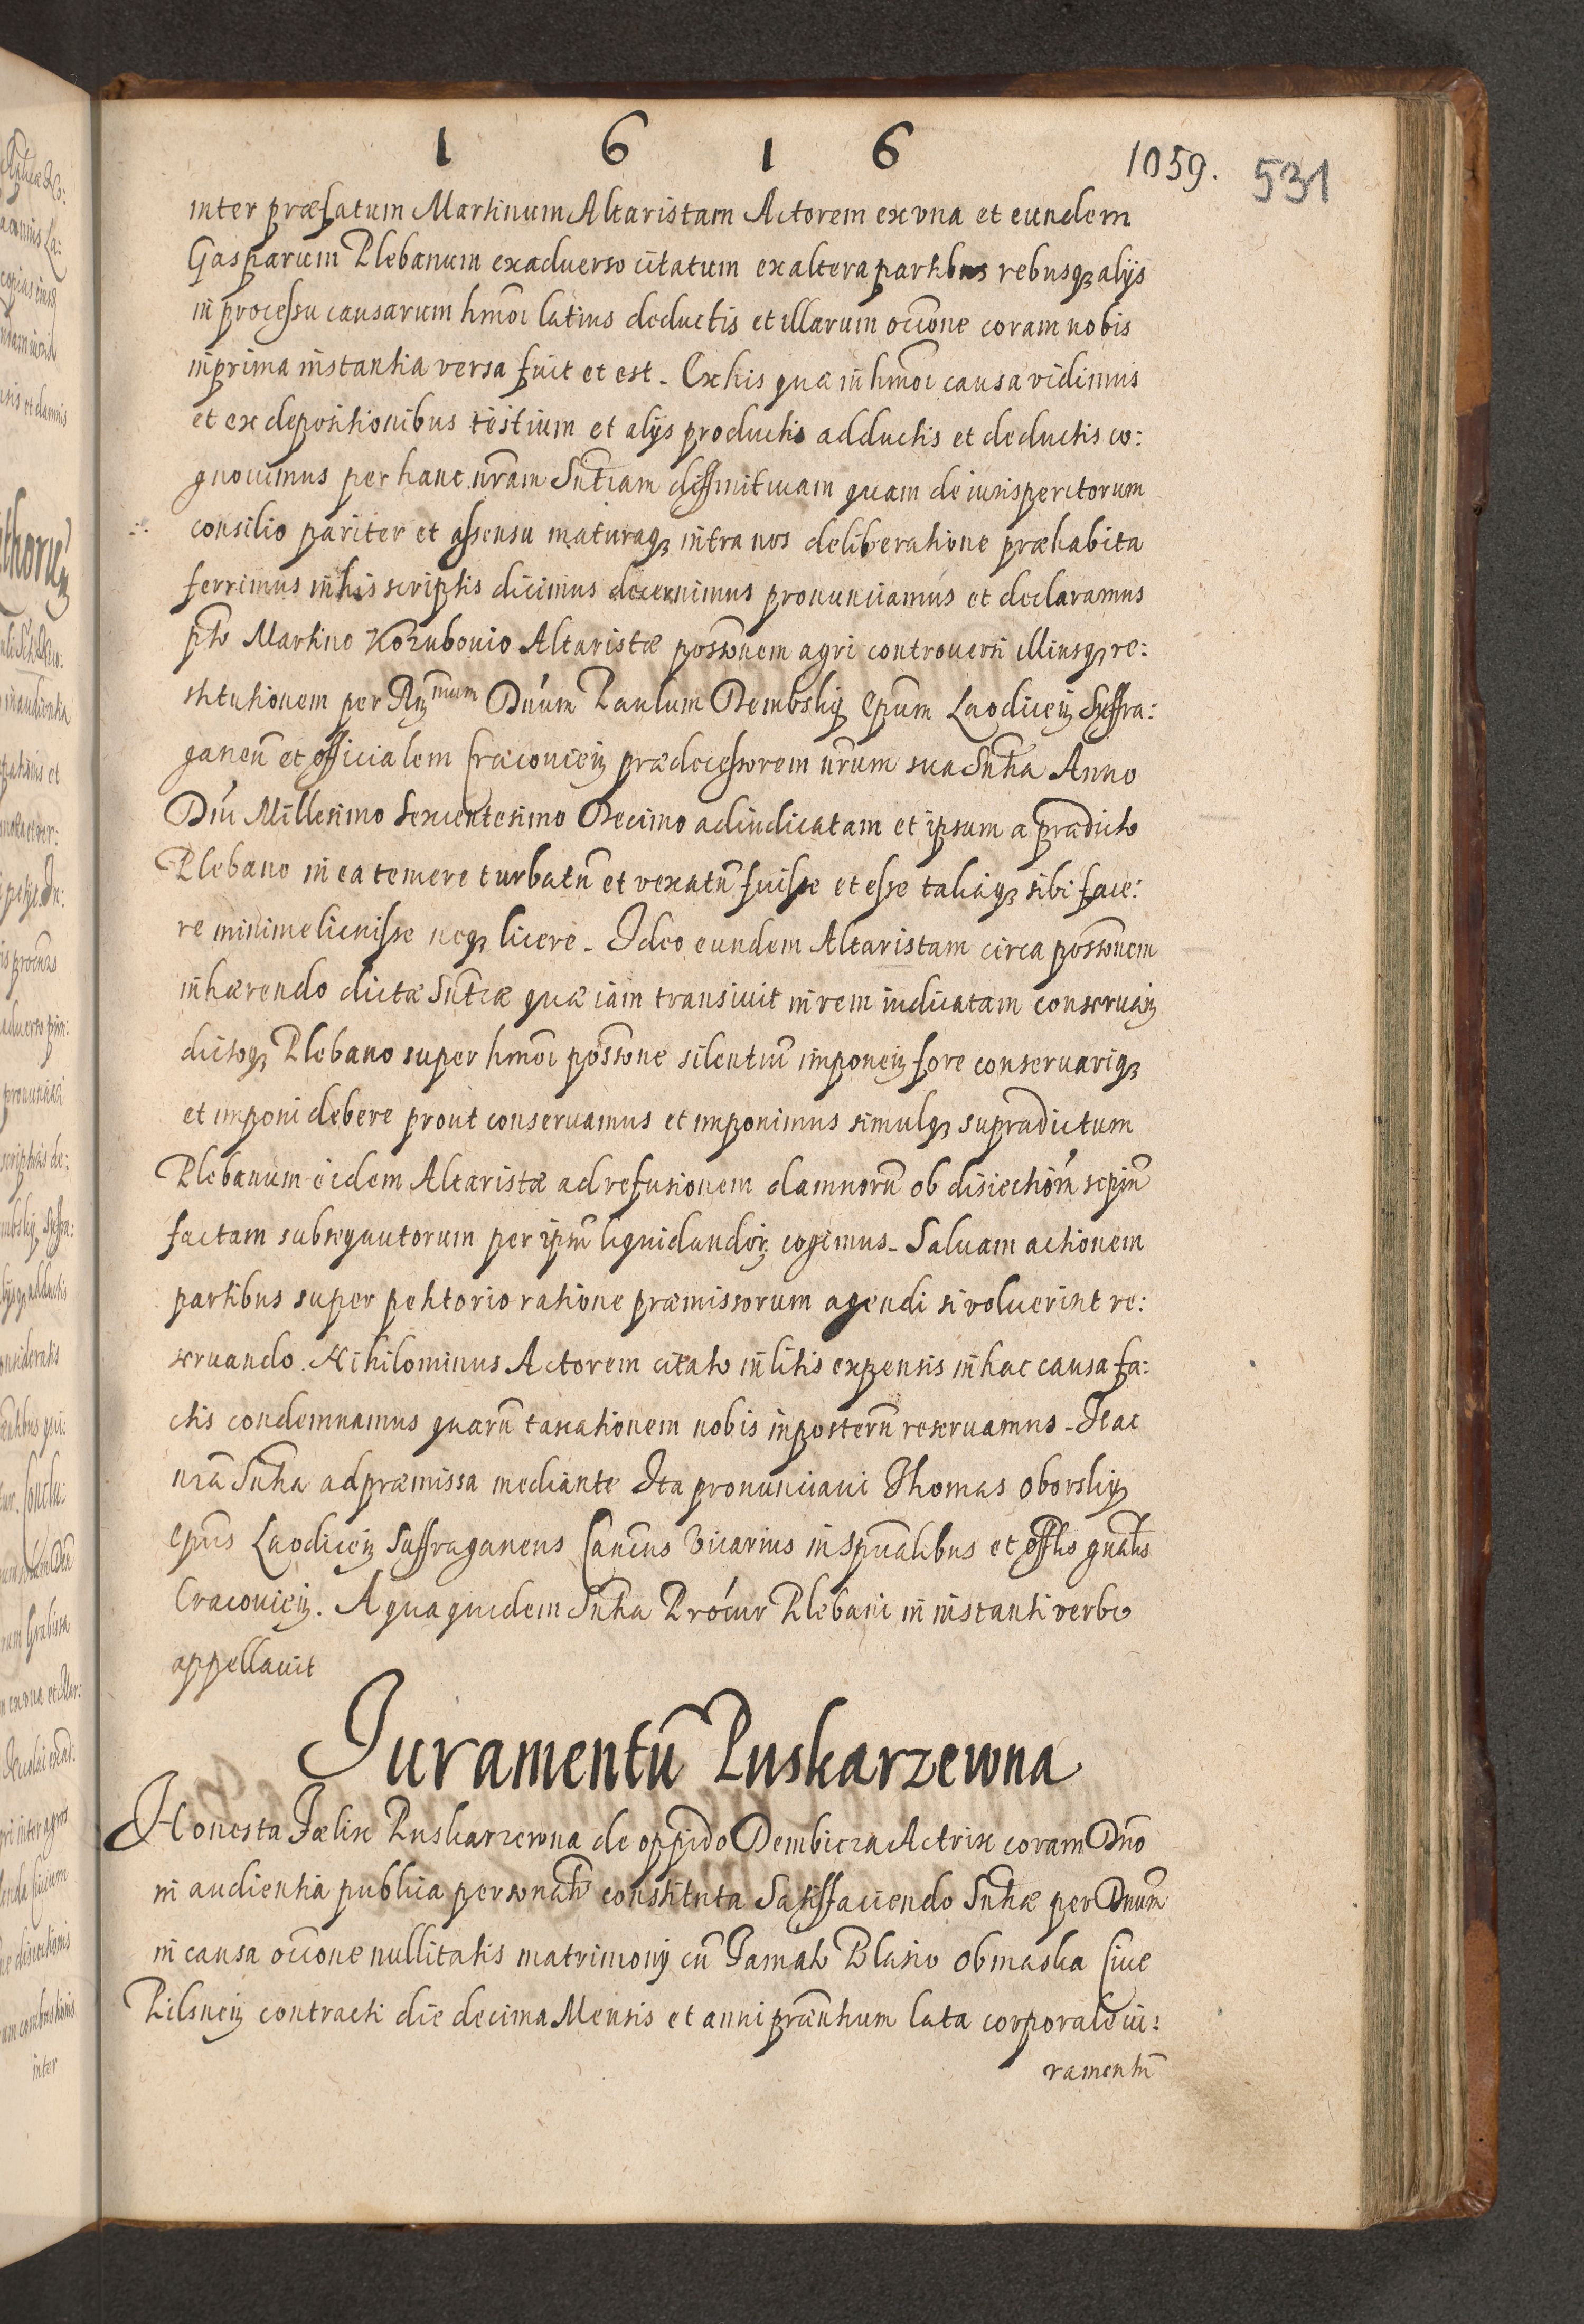 1 6 1 6 1059. 531
inter præfatum Martinum Altaristam Actorem ex vna et eundem
Gasparum Plebanum exaduerso citatum ex altera partibus rebusqȝ alijs
in processu causarum hmōi latius deductis et illarum occōne coram nobis
in prima instantia versa fuit et est. Ex his quæ in hmōi causa vidimus
et ex depositionibus testium et alijs productis adductis et deductis co:
gnouimus per hanc nr̄am Sn̄tiam diffinitiuam quam de iurisperitorum
consilio pariter et assensu maturaqȝ intra nos deliberatione præhabita
ferrimus in his scriptis dicimus decernimus pronunciamus et declaramus
pt̄o Martino Kozubouio Altaristæ possōnem agri controuersi illiusqȝ re:
stitutionem per Rȝmum Dn̄um Paulum Dembskiȝ Ep̄um Laodiceȝ Suffra:
ganeū et officialem Cracouieȝ prædecessorem nr̄um sua Sn̄tia Anno
Dn̄i Millesimo Sexcentesimo Decimo adiudicatam et ipsum a prædicto
Plebano in ea temere turbatū et vexatū fuisse et esse taliaqȝ sibi face:
re minime licuisse neqȝ licere. Ideo eundem Altaristam circa possōnem
inhærendo dictæ Sn̄tiæ quæ iam transiuit in rem iudicatam conseruaȝ
dictoqȝ Plebano super hmōi possōne silentiū imponeȝ fore conseruariqȝ
et imponi debere prout conseruamus et imponimus simulqȝ supradictum
Plebanum eidem Altaristæ ad refusionem damnorū ob disiectiōm sepiū
factam subsequutorum per ipsū liquidandoȝ cogimus. Saluam actionem
partibus super petitorio ratione præmissorum agendi si voluerint re:
seruando. Nihilominus Actorem citato in litis expensis in hac causa fa:
ctis condemnamus quarū taxationem nobis in posterū reseruamus. Hac
nr̄a Sn̄tia ad præmissa mediante Ita pronunciaui Thomas Oborskiȝ
Ep̄us Laodiceȝ Suffraganeus Can̄cus Vicarius in Spūalibus et Off̄lis gn̄alis
Cracouieȝ. A qua quidem Sn̄tia Procur Plebani in instanti verbo
appellauit
Juramentū Puskarzewna
Honesta Fælix Puskarzewna de oppido Dembicza Actrix coram Dn̄o
in audientia publica personalr̄ constituta Satisfaciendo Sn̄tiæ per Dn̄um
in causa occōne nullitatis matrimonij cū Famato Blasio Obmaska Ciue
Pilsneȝ contracti die decima Mensis et anni præn̄tium lata corporale iu:
ramentū